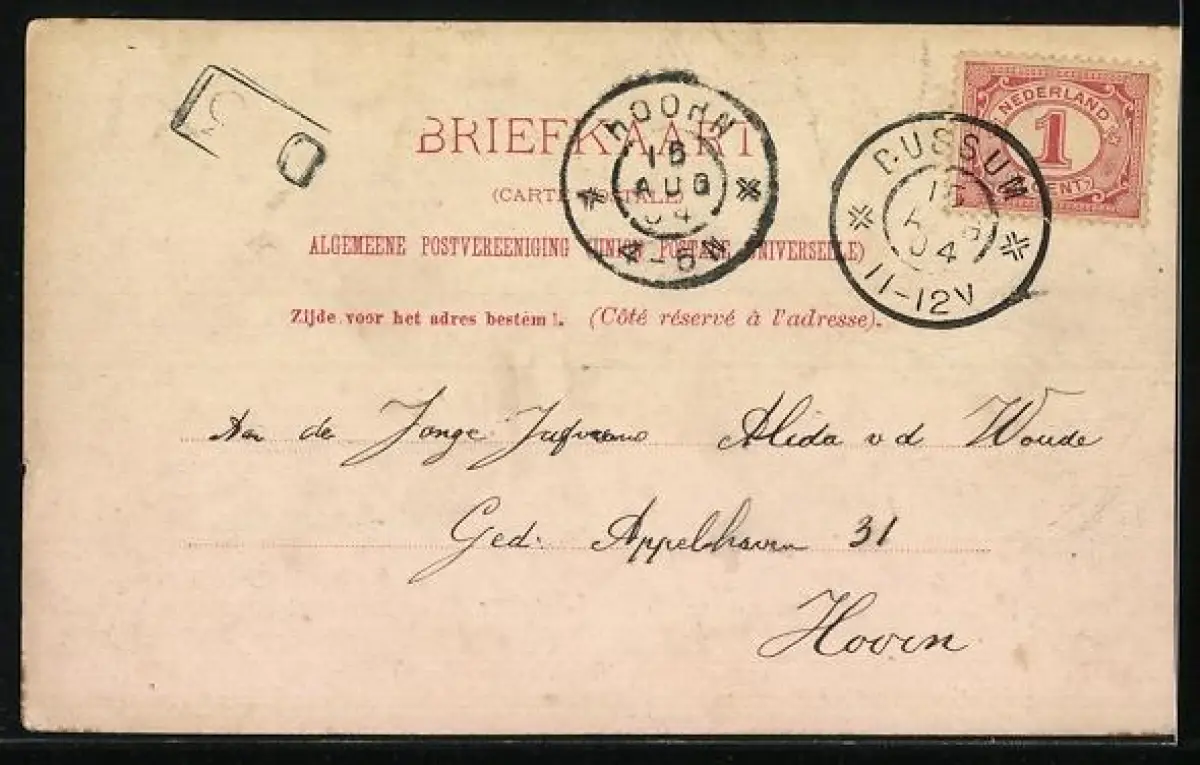 NEDERLAND
1
CENT
BUSSUM
04
11-12V
HOORN
15
AUG
04
4-5N
5
D
BRIEFKAART
(CARTE POSTALE)
ALGEMEENE POSTVEREENIGING (UNION POSTALE UNIVERSELLE)
Zijde voor het adres bestemd. (Côté réservé à l'adresse).
Aan de Jonge Jufvrouw Alida v d Woude
Ged: Appelhaven 31
Hoorn